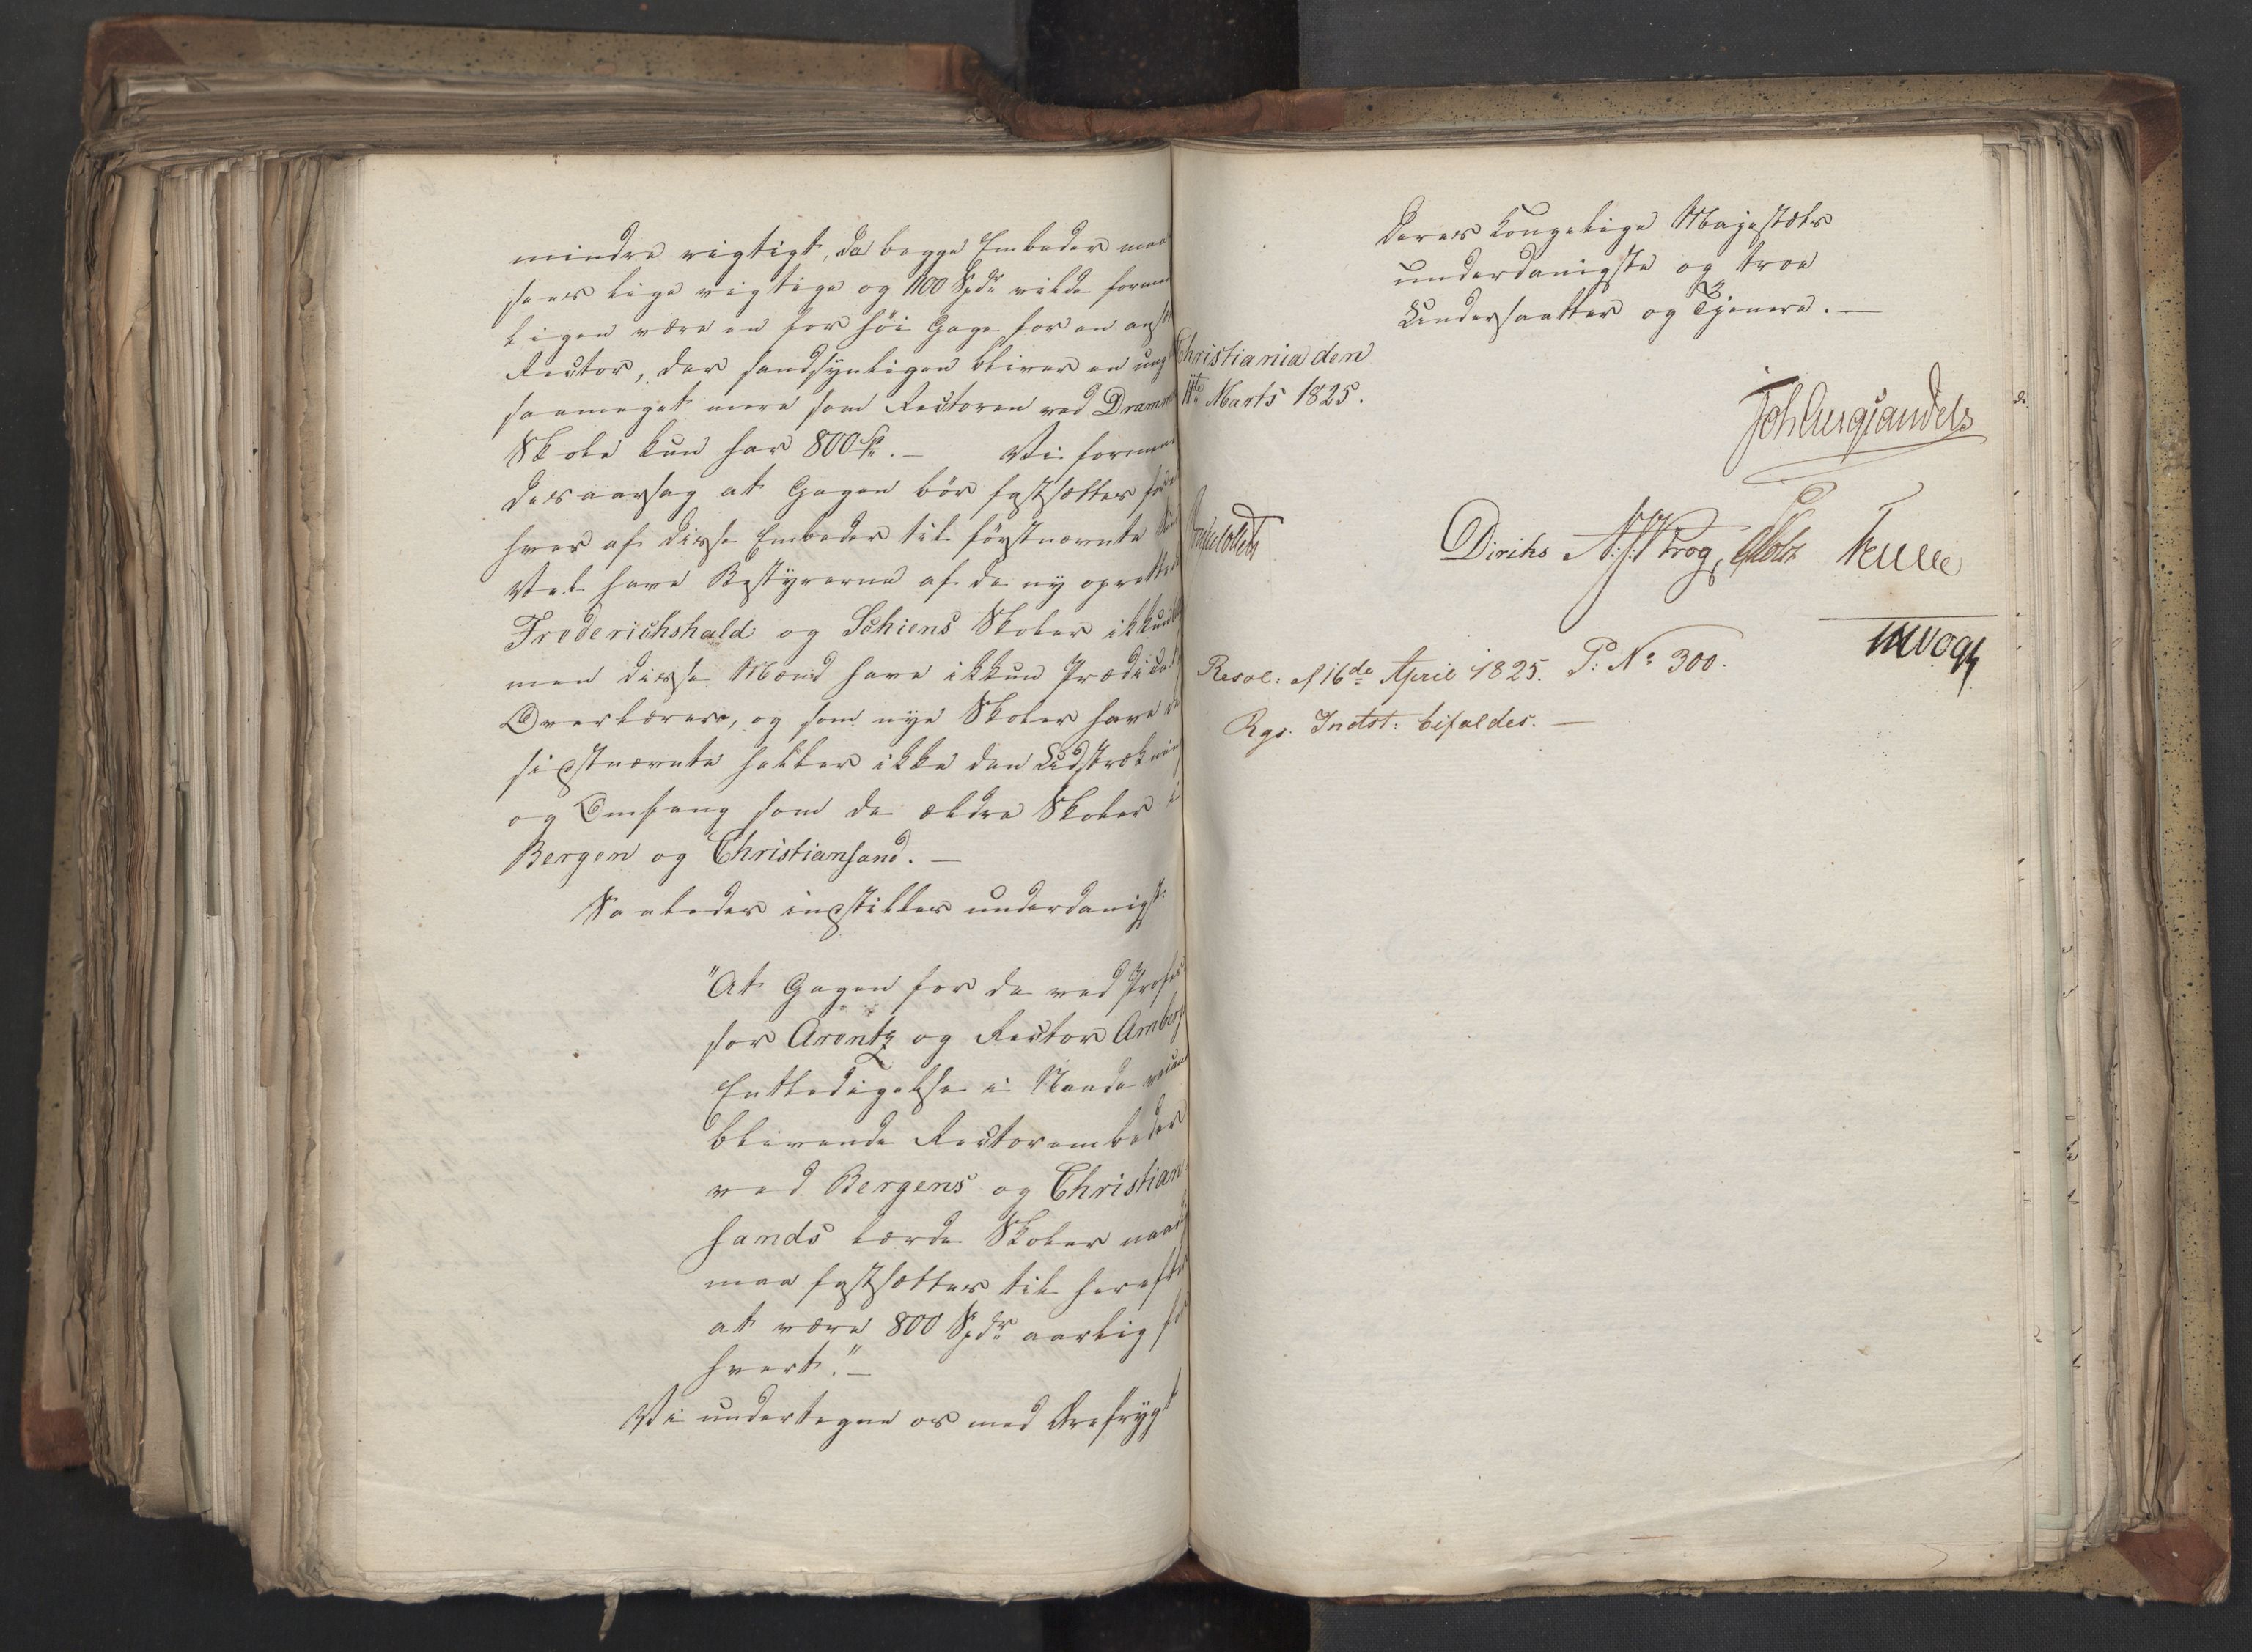 mindre vigtigt, da begge Embeder maa
sees lige vigtige og 1100 Spdr vilde formee
ligen være en for höi Gage for en
Rector, der sandsynligen bliver en ung
saameget mere som Rectoren ved Dramm
Skole kun har 800 Sp. — Vi formee
desaarsag at Gagen bör fastsættes for
hver af disse Embeder til förstnævnte
Vel have Bestyrerne af de ny oprettede
Frederichshald og Schiens Skoler ikkun
men disse Mænd have ikkun Prædicat
Overlærere, og som nye Skoler have de
sidstnævnte heller ikke den Udstrækning
og Omfang som de ældre Skoler i
Bergen og Christiansand. —
Saaledes indstilles underdanigst:
"At Gagen for de ved Profes
sor Arentz og Rector Amberg
Entledigelse i Naade vacant
blivende Rectorembeder
ved Bergens og Christian
sands lærde Skoler naad
maa fastsættes til herefter
at være 800 Spdr aarlig for
hvert." —
Vi undertegne os med Ærefrygt
Deres Kongelige Majestæts
underdanigste og troe
Undersaatter og Tjenere. —
Christiania den
11te Marts 1825.
Diriks Krog, Holst
Resol: af 16de April 1825. P: No 300.
Rgs. Indst: bifaldes. —